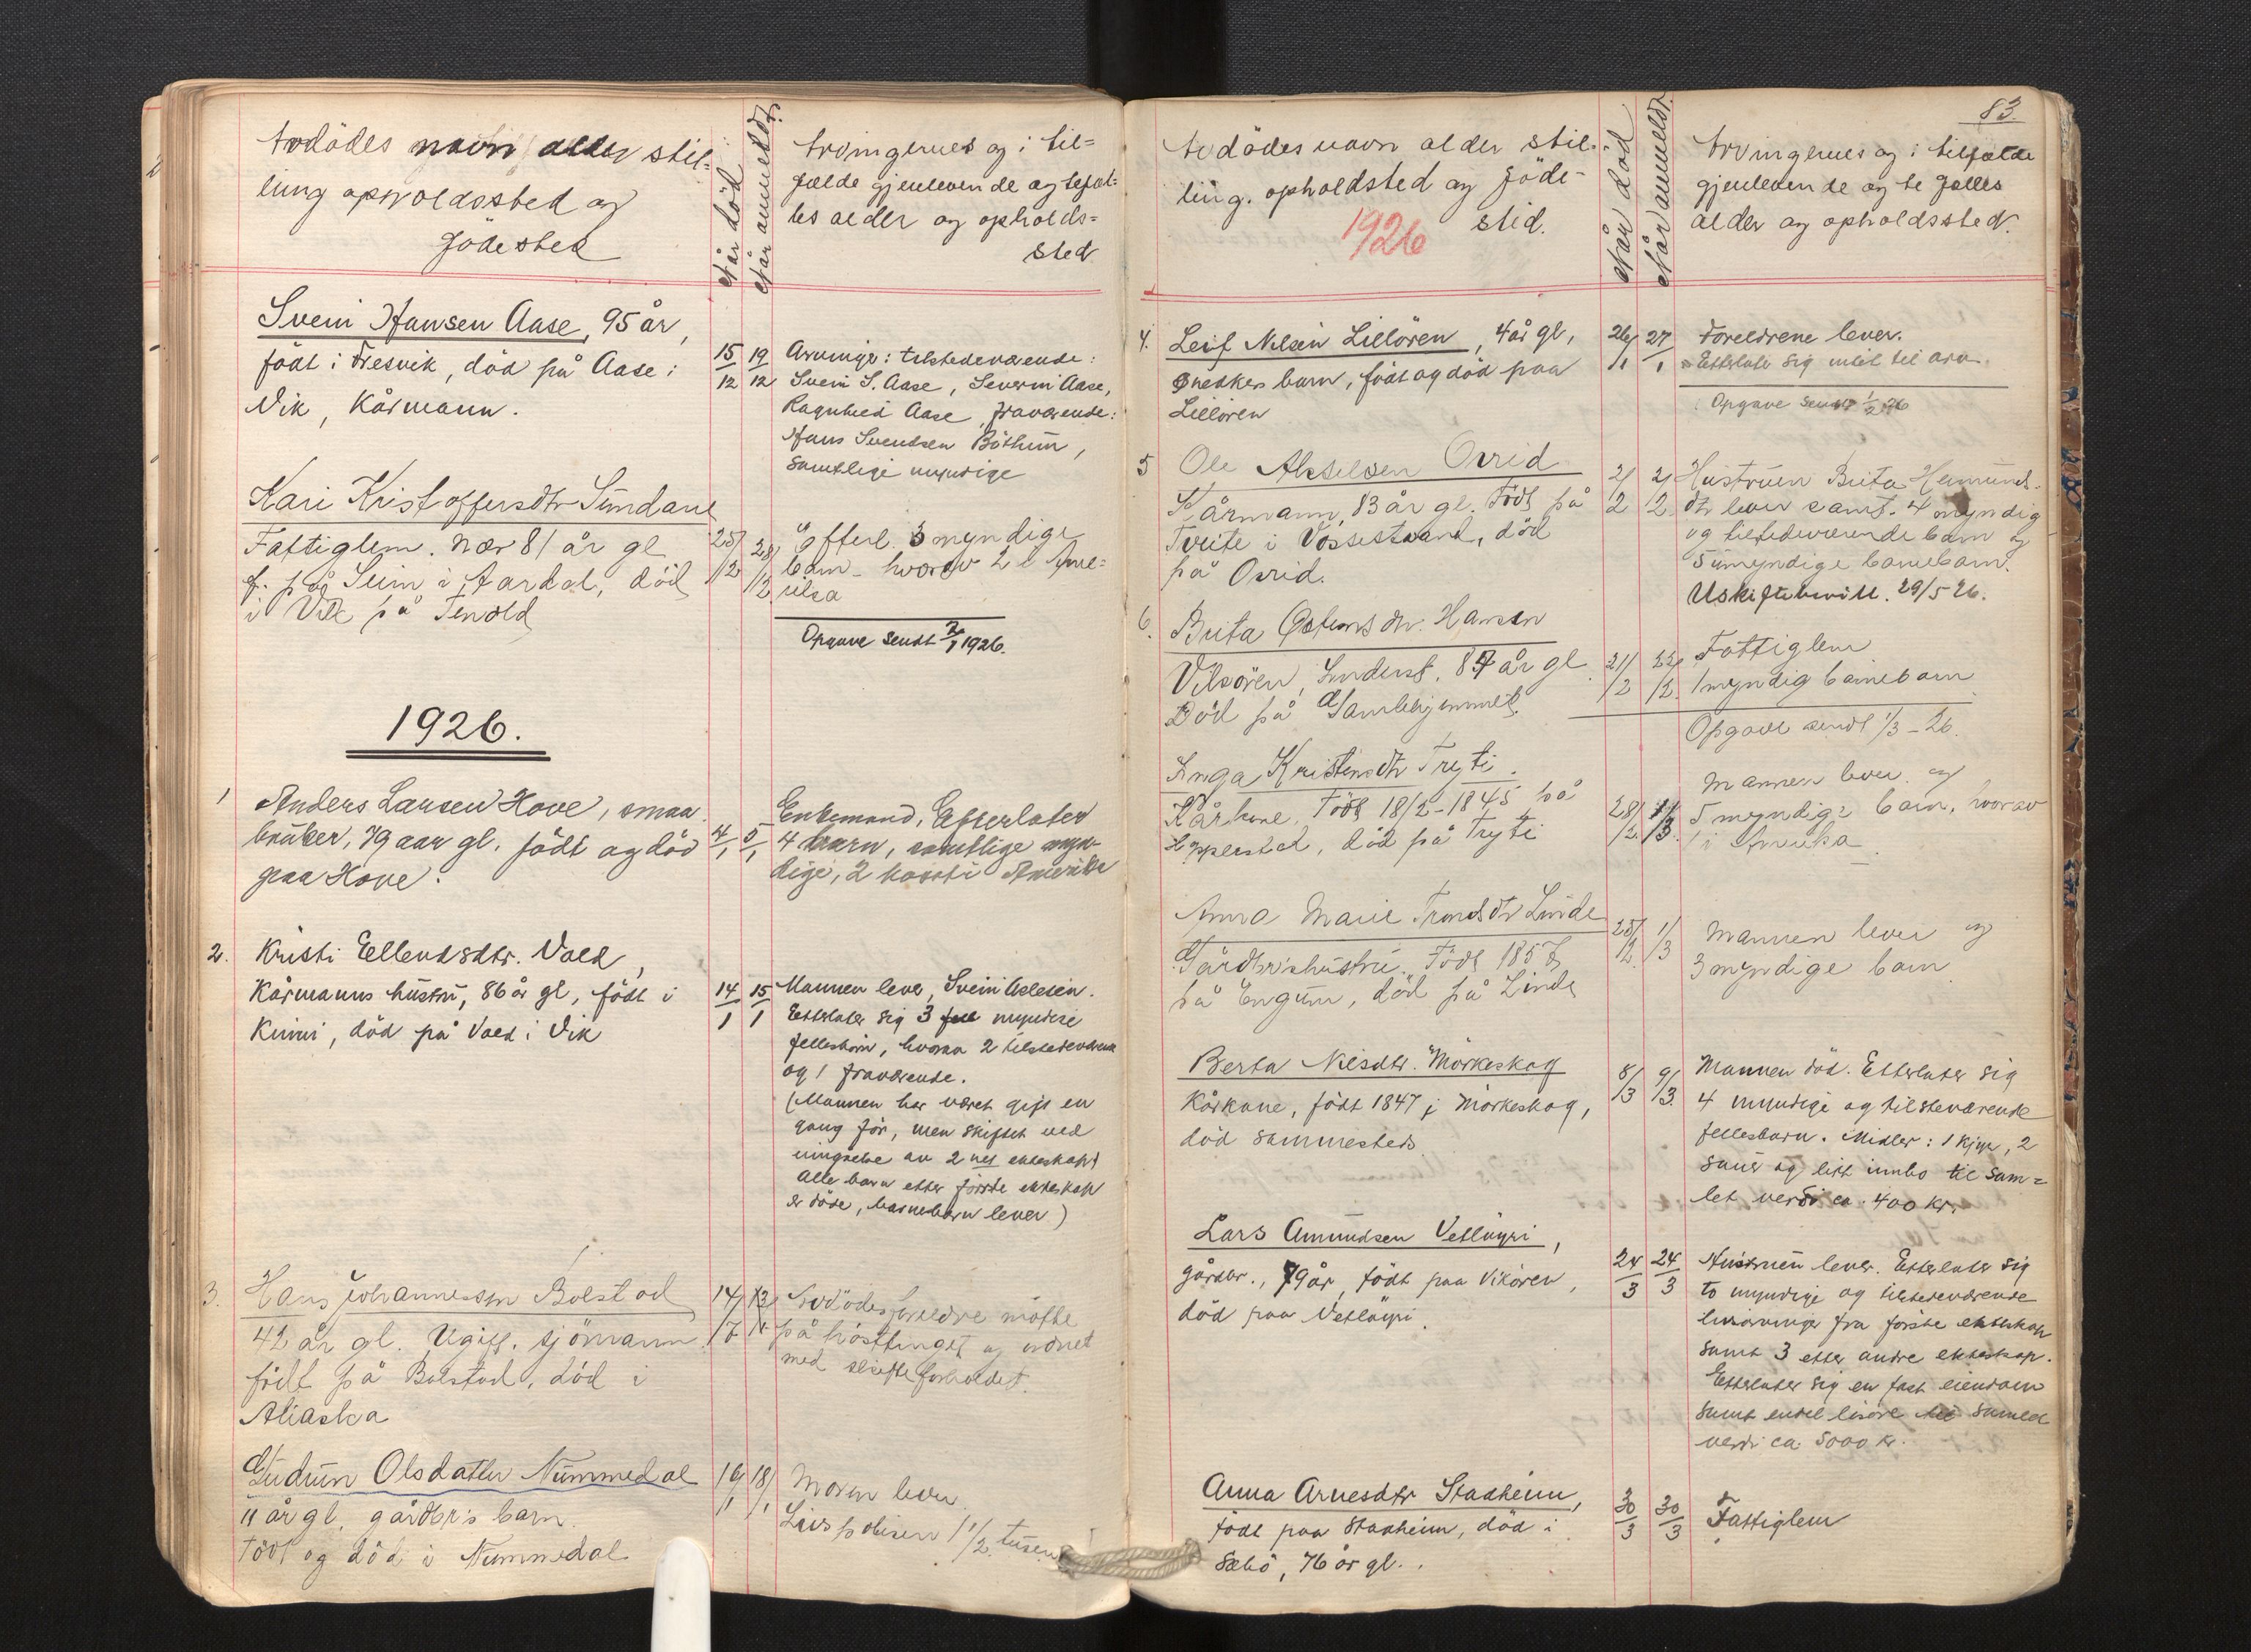 Avdödes navn alder stil=
ling opholdssted og
födested
Når död
Når anmeldt.
Arvingernes og i til=
fælde gjenlevende ægtefæl=
les alder og opholds=
sted
Svein Hansen Aase, 95 år,
födt i Fresvik, död på Aase i
Vik, Kårmann.
15/12
19/12
Arvinger: tilstedeværende:
Svein S. Aase, Severin Aase,
Ragnhild Aase, fraværende:
Hans Svendsen Böthun,
samtlige myndige
Kari Kristoffersdtr Sundane
Fattiglem. Nær 81 år gl
f. på Seim i Aardal, död
i Vik på Tenold
25/12
28/12
Efterl. 3 myndige
barn - hvorav 2 i Ame=
rika
Opgave sendt 2/1 1926.
1926.
1
Anders Larsen Hove, smaa
bruker, 79 aar gl. födt og död
paa Hove.
4/1
5/1
Enkemand, Efterlater
4 barn, samtlige myn-
dige, 2 borte i Amerika
2.
Kristi Ellendsdtr. Vold,
Kårmanns hustru, 86 år gl, födt i
Kinni, död på Vold i Vik
14/1
15/1
Mannen lever, Svein Aslesen.
Etterlater sig 3 myndige
fellesbarn, hvorav 2 tilstedeværende
og 1 fraværende.
(Mannen har været gift en
gang för, men skiftet ved
inngåelse av 2net ekteskap
Alle barn etter förste ekteskap
er döde, barnebarn lever)
3.
Hans Johannessen Bolstad
42 år gl. Ugift. sjömann
födt på Bolstad, död i
Aliaska
14/7
13/1
Avdödes foreldre mötte
på hösttinget og ordnet
med skifteforholdet.
Gudrun Olsdatter Nummedal
11 år gl. gårdbr's barn.
Födt og död i Nummedal
16/1
18/1
Moren lever
Livspolisen 1 1/2 tusen
83.
Avdödes navn alder stil-
ling. opholdsted og föde-
sted.
1926
Når död
Når anmeldt.
Arvingernes og i tilfælde
gjenlevende ægtefælles
alder og opholdssted.
4.
Leif Nilsen Lillören, 4 år gl,
Snedkers barn, födt og död paa
Lillören
26/1
27/1
Foreldrene lever.
Etterlater sig intet til arv.
Opgave sendt 1/2 26
5
Ole Akselsen Ovrid
Kårmann, 83 år gl. Födt på
Tveite i Vossestrand, död
på Ovrid.
2/2
2/2
Hustruen Brita Hermunds-
dtr lever samt 4 myndig
og tilstedeværende barn og
5 umyndige barnebarn.
Uskiftebevill. 29/5 26.
6.
Brita Östensdtr. Hansen
Viksören, Underst. 87 år gl
Död på Gamlehjemmet.
21/2
22/2
Fattiglem
1 myndig barnebarn
Opgave sendt 1/3 - 26.
Inga Kristensdtr Tryti.
Kårkone. Födt 18/2 - 1845 på
Hopperstad, död på Tryti
28/2
1/3
Mannen lever og
5 myndige barn, hvorav
1 i Amerika
Anna Marie Trondsdtr Linde
Gårdbr's hustru. Födt 1857
på Engum, död på Linde
25/2
1/3
Mannen lever og
3 myndige barn
Berta Nilsdtr. Mörkeskog
Kårkone, födt 1847 i Mörkeskog,
död sammesteds
8/3
9/3
Mannen död. Etterlater sig
4 myndige og tilsteværende
fellesbarn. Midler: 1 kjyr, 2
sauer og litt innbo til sam=
let verdi ca. 400 kr.
Lars Amundsen Vetlöyri,
gårdbr., 79 år, födt paa Vikören,
död paa Vetlöyri.
24/3
24/3
Hustruen lever. Etterlater sig
to myndige og tilstedeværende
livsarvinger fra förste ekteskap
samt 3 etter andre ekteskap.
Etterlater sig en fast eiendom
samt endel lösöre til samled
verdi ca. 5000 kr.
Anna Arnesdtr Stadheim,
född paa Stadheim, död i
Sæbö, 76 år gl.
30/3
30/3
Fattiglem